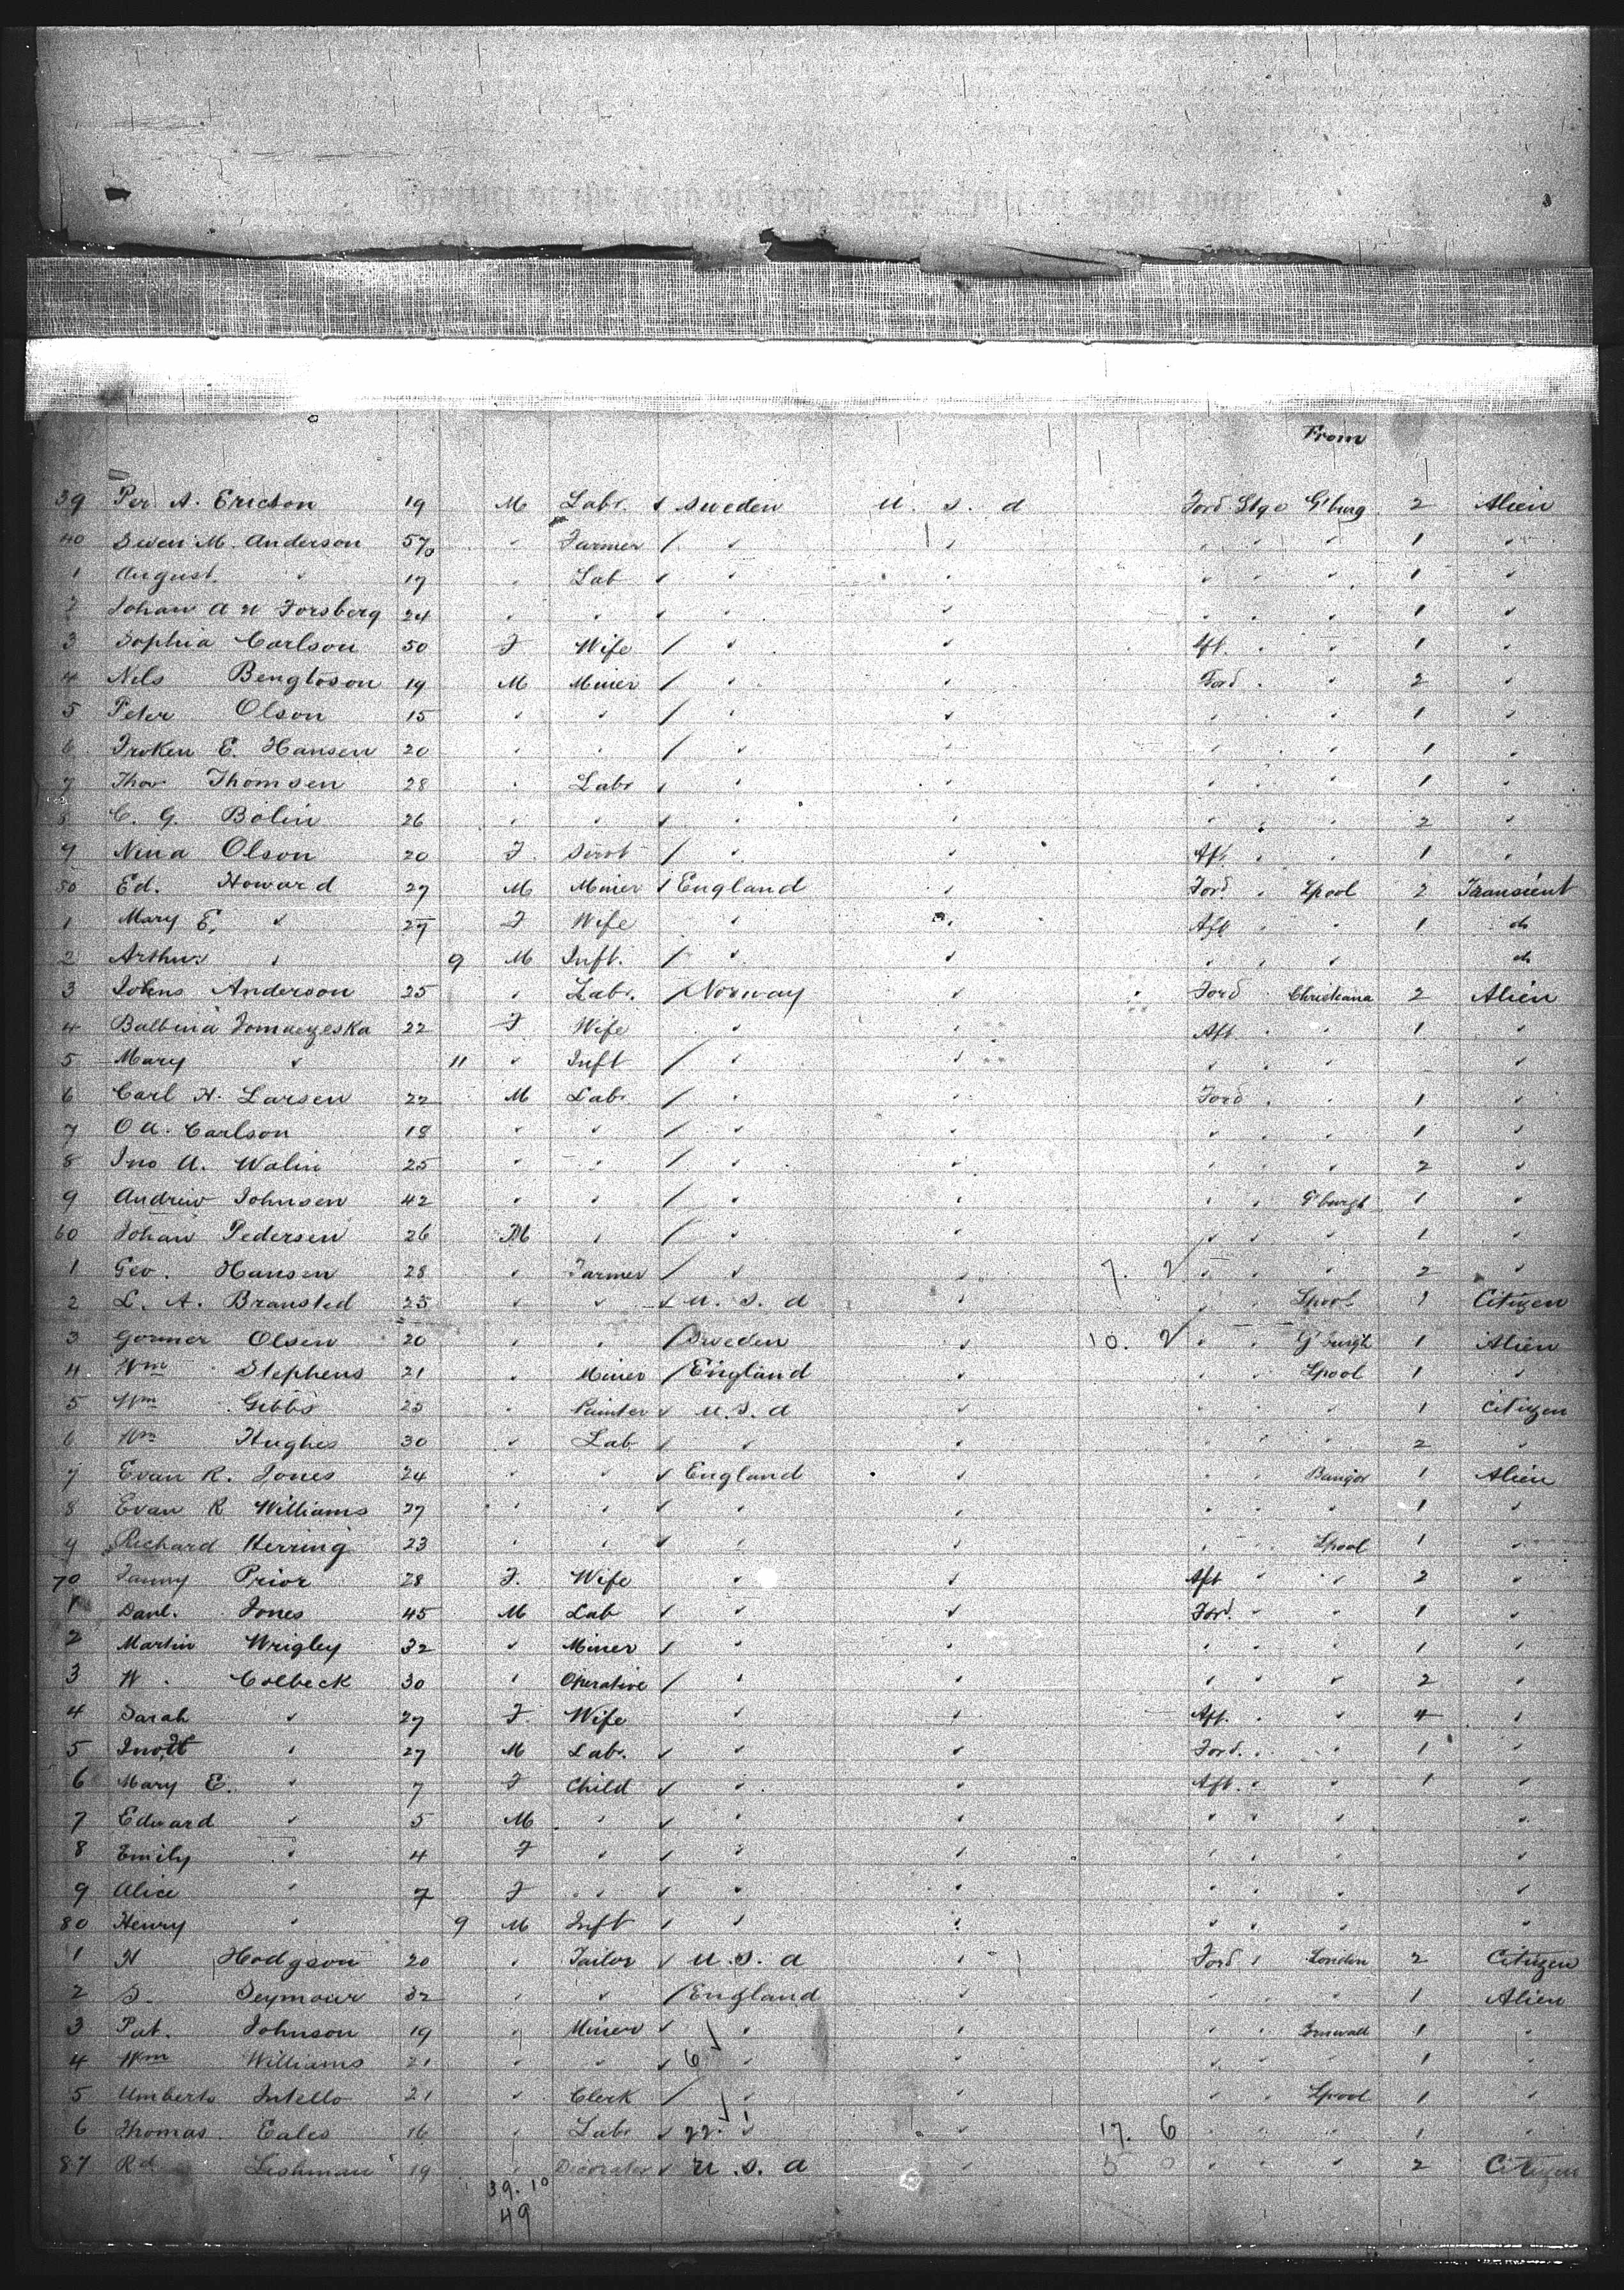 From
39 Per A. Ericson 19 M Labr. ✓ Sweden U. S. A Ford Stge G'burg 2 Alien
40 Swen M. Anderson 57 " Farmer / " " " " " 1 "
1 August " 17 " Lab ✓ " " " " " 1 "
2 Johan A N Forsberg 24 " " ✓ " " " " " 1 "
3 Sophia Carlson 50 F Wife / " " Aft. " " 1 "
4 Nels Bengtson 19 M Miner / " " Ford " " 2 "
5 Peter Olson 15 " " / " " " " " 1 "
6 E. Hansen 20 " " / " " " " 1 "
7 Thor Thomsen 28 " Labr ✓ " " " " " 1 "
8 C. G. Bolin 26 " " ✓ " " " " " 2 "
9 Nina Olson 20 F. Servt / " " Aft " " 1 "
50 Ed. Howard 27 M Miner ✓ England " Ford " Lpool 2 Transient
1 Mary E. " 27 F Wife " " Aft " " 1 do
2 Arthur " 9 M Inft. / " " " " " do
3 Johns Anderson 25 " Labr. / Norway " Ford " Christiana 2 Alien
4 Balbina 22 F Wife " " Aft " " 1 "
5 Mary " 11 " Inft / " " " " " "
6 Carl H. Larsen 22 M Labr / " " Ford " " 1 "
7 O A. Carlson 18 " " / " " " " " 1 "
8 Jno A. Walin 25 " " / " " " " " 2 "
9 Andrew Johnsen 42 " " / " " " " G'burgh 1 "
60 Johan Pedersen 26 M " / " " " " " 1 "
1 Geo. Hansen 28 " Farmer / " " 7. 2 " " " 2 "
2 L. A. Bransted 25 " " ✓ U. S. A " " " Lpool 1 Citizen
3 Gonner Olsen 20 " " / Sweden " 10. 2 " " G'burgh 1 Alien
4 Wm Stephens 21 " Miner / England " " " Lpool 1 "
5 Wm Gibbs 25 " Painter ✓ U. S. A " " " " 1 Citizen
6 Wm Hughes 30 " Lab ✓ " " " " " 2 "
7 Evan R. Jones 24 " " ✓ England " " " Bangor 1 Alien
8 Evan R Williams 27 " " ✓ " " " " " 1 "
9 Richard Herring 23 " " ✓ " " " " Lpool 1 "
70 Fanny Prior 28 F. Wife " " Aft " " 2 "
1 Danl. Jones 45 M Lab ✓ " " Ford. " " 1 "
2 Martin Wrigley 32 " Miner ✓ " " " " " 1 "
3 W. Colbeck 30 " Operative / " " " " " 2 "
4 Sarah " 27 F. Wife " " Aft. " " 4 "
5 " 27 M Labr. ✓ " " Ford. " " 1 "
6 Mary E. " 7 F Child ✓ " " Aft. " " 1 "
7 Edward " 5 M " ✓ " " " " " "
8 Emily " 4 F " ✓ " " " " " "
9 Alice " 7 F " ✓ " " " " " "
80 Henry " 9 M Inft ✓ " " " " " "
1 H Hodgson 20 " Tailor ✓ U. S. A " Ford " London 2 Citizen
2 S. Seymour 32 " " / England " " " " 1 Alien
3 Pat. Johnson 19 " Miner ✓ " " " " 1 "
4 Wm Williams 21 " " ✓ 6 " " " " " 1 "
5 Umberto Intello 21 " Clerk / " " " " Lpool 1 "
6 Thomas Eales 16 " Labr ✓ 22 " " 17. 6 " " " 1 "
87 Rd Lishman 19 " Decorator ✓ U. S. A " " " " 2 Citizen
39. 10
49